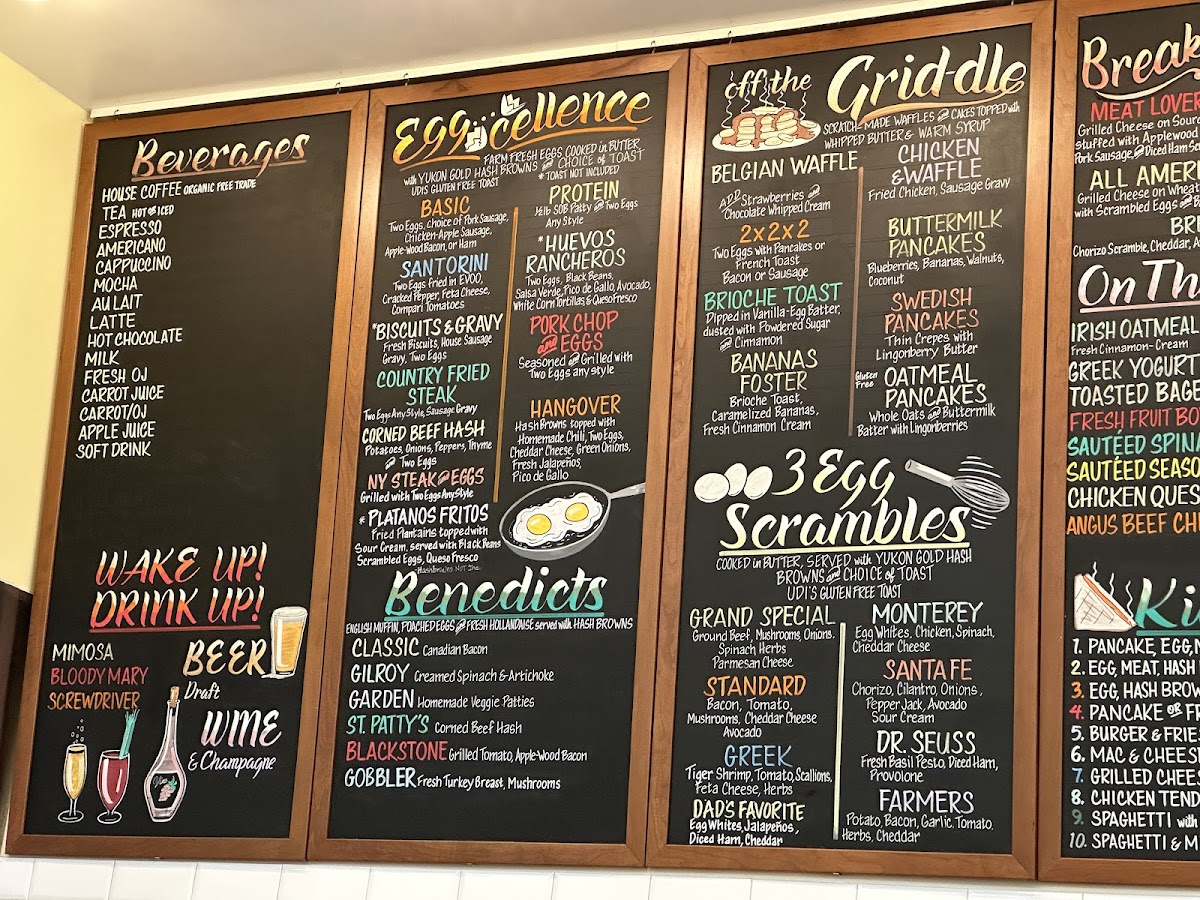 Beverages
HOUSE COFFEE ORGANIC FREE TRADE
TEA HOT OR ICED
ESPRESSO
AMERICANO
CAPPUCCINO
MOCHA
AU LAIT
LATTE
HOT CHOCOLATE
MILK
FRESH OJ
CARROT JUICE
CARROT/OJ
APPLE JUICE
SOFT DRINK
WAKE UP!
DRINK UP!
MIMOSA
BLOODY MARY
SCREWDRIVER
BEER
Draft
WINE
& Champagne
Egg...cellence
FARM FRESH EGGS COOKED in BUTTER
with YUKON GOLD HASH BROWNS and CHOICE of TOAST
UDIS GLUTEN FREE TOAST
* TOAST NOT INCLUDED
BASIC
Two Eggs, choice of Pork Sausage,
Chicken-Apple Sausage,
Apple-Wood Bacon, or Ham
SANTORINI
Two Eggs fried in EVOO,
Cracked Pepper, Feta Cheese,
Compari Tomatoes
*BISCUITS & GRAVY
Fresh Biscuits, House Sausage
Gravy, Two Eggs
COUNTRY FRIED
STEAK
Two Eggs Any Style, Sausage Gravy
CORNED BEEF HASH
Potatoes, Onions, Peppers, Thyme
and Two Eggs
NY STEAK and EGGS
Grilled with Two Eggs Any Style
* PLATANOS FRITOS
Fried Plantains topped with
Sour Cream, served with Black Beans
Scrambled Eggs, Queso Fresco
PROTEIN
1/2 lb SDB Patty and Two Eggs
Any Style
*HUEVOS
RANCHEROS
Two Eggs, Black Beans,
Salsa Verde, Pico de Gallo, Avocado,
White Corn Tortillas, & Queso Fresco
PORK CHOP
and EGGS
Seasoned and Grilled with
Two Eggs any style
HANGOVER
Hash Browns topped with
Homemade Chili, Two Eggs,
Cheddar Cheese, Green Onions,
Fresh Jalapeños,
Pico de Gallo
Benedicts
ENGLISH MUFFIN, POACHED EGGS and FRESH HOLLANDAISE served with HASH BROWNS
CLASSIC Canadian Bacon
GILROY Creamed Spinach & Artichoke
GARDEN Homemade Veggie Patties
ST. PATTY'S Corned Beef Hash
BLACKSTONE Grilled Tomato, Apple-Wood Bacon
GOBBLER Fresh Turkey Breast, Mushrooms
off the
Grid-dle
SCRATCH-MADE WAFFLES and CAKES TOPPED with
WHIPPED BUTTER & WARM SYRUP
BELGIAN WAFFLE
ADD Strawberries and
Chocolate Whipped Cream
2x2x2
Two Eggs with Pancakes or
French Toast
Bacon or Sausage
BRIOCHE TOAST
Dipped in Vanilla-Egg Batter,
dusted with Powdered Sugar
and Cinnamon
BANANAS
FOSTER
Brioche Toast,
Caramelized Bananas,
Fresh Cinnamon Cream
CHICKEN
& WAFFLE
Fried Chicken, Sausage Gravy
BUTTERMILK
PANCAKES
Blueberries, Bananas, Walnuts,
Coconut
SWEDISH
PANCAKES
Thin Crepes with
Lingonberry Butter
Gluten
Free
OATMEAL
PANCAKES
Whole Oats and Buttermilk
Batter with Lingonberries
3 Egg
Scrambles
COOKED in BUTTER, SERVED with YUKON GOLD HASH
BROWNS and CHOICE of TOAST
UDI'S GLUTEN FREE TOAST
GRAND SPECIAL
Ground Beef, Mushrooms, Onions,
Spinach, Herbs
Parmesan Cheese
STANDARD
Bacon, Tomato,
Mushrooms, Cheddar Cheese
Avocado
GREEK
Tiger Shrimp, Tomato, Scallions,
Feta Cheese, Herbs
DAD'S FAVORITE
Egg Whites, Jalapeños,
Diced Ham, Cheddar
MONTEREY
Egg Whites, Chicken, Spinach,
Cheddar Cheese
SANTA FE
Chorizo, Cilantro, Onions,
Pepper Jack, Avocado
Sour Cream
DR. SEUSS
Fresh Basil Pesto, Diced Ham,
Provolone
FARMERS
Potato, Bacon, Garlic, Tomato,
Herbs, Cheddar
Break
MEAT LOVER
Grilled Cheese on Sour
stuffed with Applewood
Pork Sausage, and Diced Ham Sc
ALL AMERI
Grilled Cheese on Wheat
with Scrambled Eggs and B
BR
Chorizo Scramble, Cheddar, A
On Th
IRISH OATMEAL
Fresh Cinnamon-Cream
GREEK YOGURT
TOASTED BAGE
FRESH FRUIT BO
SAUTÉED SPIN
SAUTÉED SEASO
CHICKEN QUES
ANGUS BEEF CH
Ki
1. PANCAKE, EGG, M
2. EGG, MEAT, HASH
3. EGG, HASH BROW
4. PANCAKE OR FR
5. BURGER & FRIES
6. MAC & CHEESE
7. GRILLED CHEES
8. CHICKEN TEND
9. SPAGHETTI with
10. SPAGHETTI & M